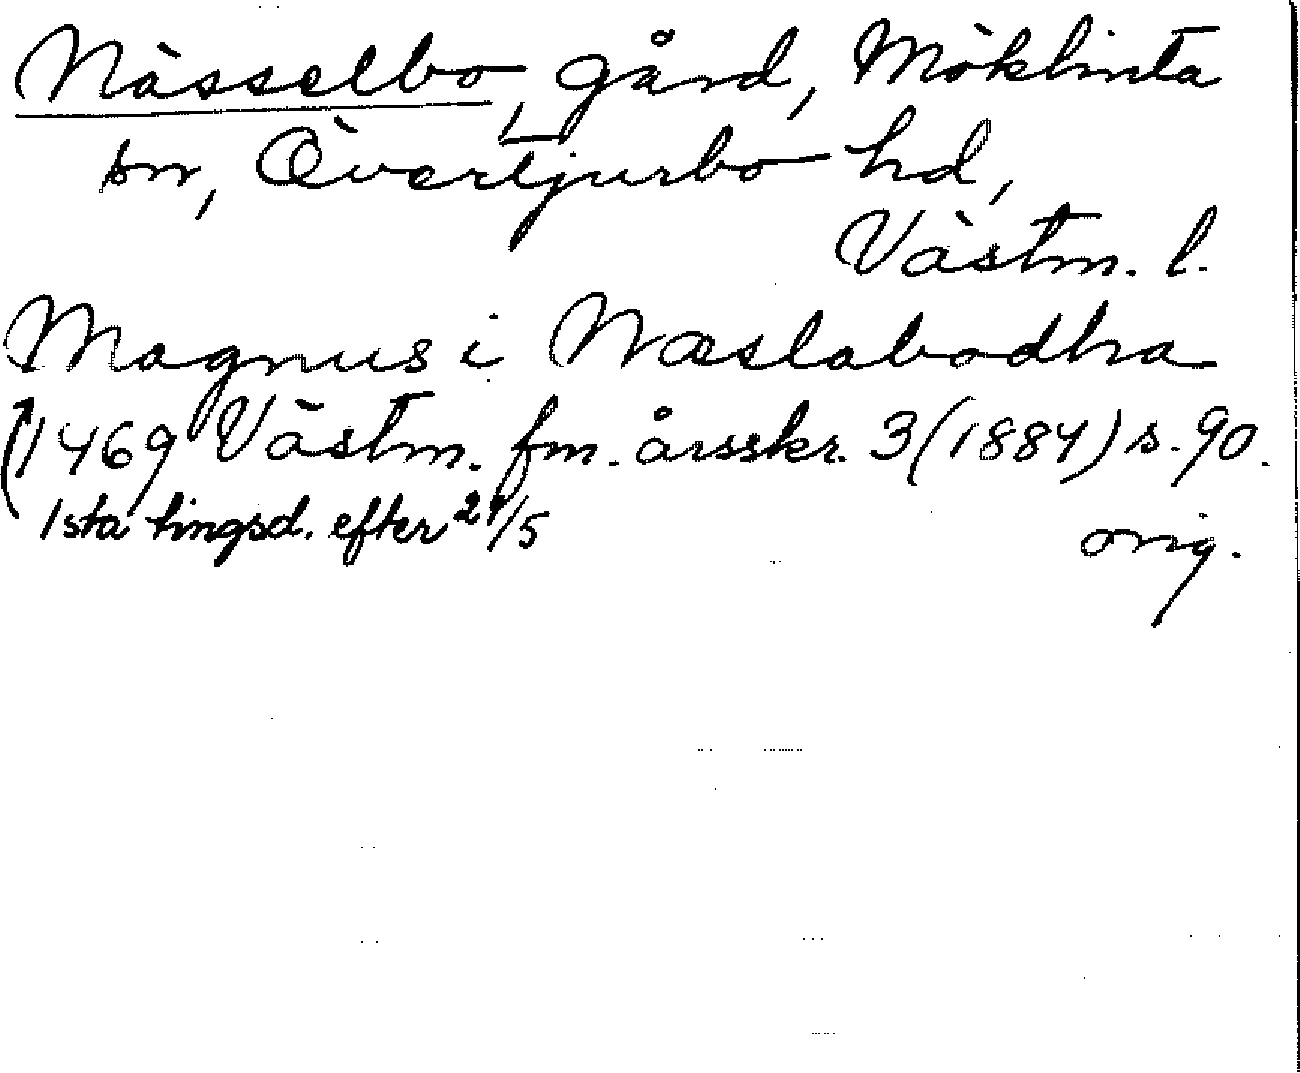 Nässelbo, gård, Möklinta
sn, Övertjurbo hd,
Västm. l.
Magnus i Næslabodha
1469 Västm. fm. årsskr. 3 (1884) s. 90.
1sta tingsd. efter 24/5
orig.